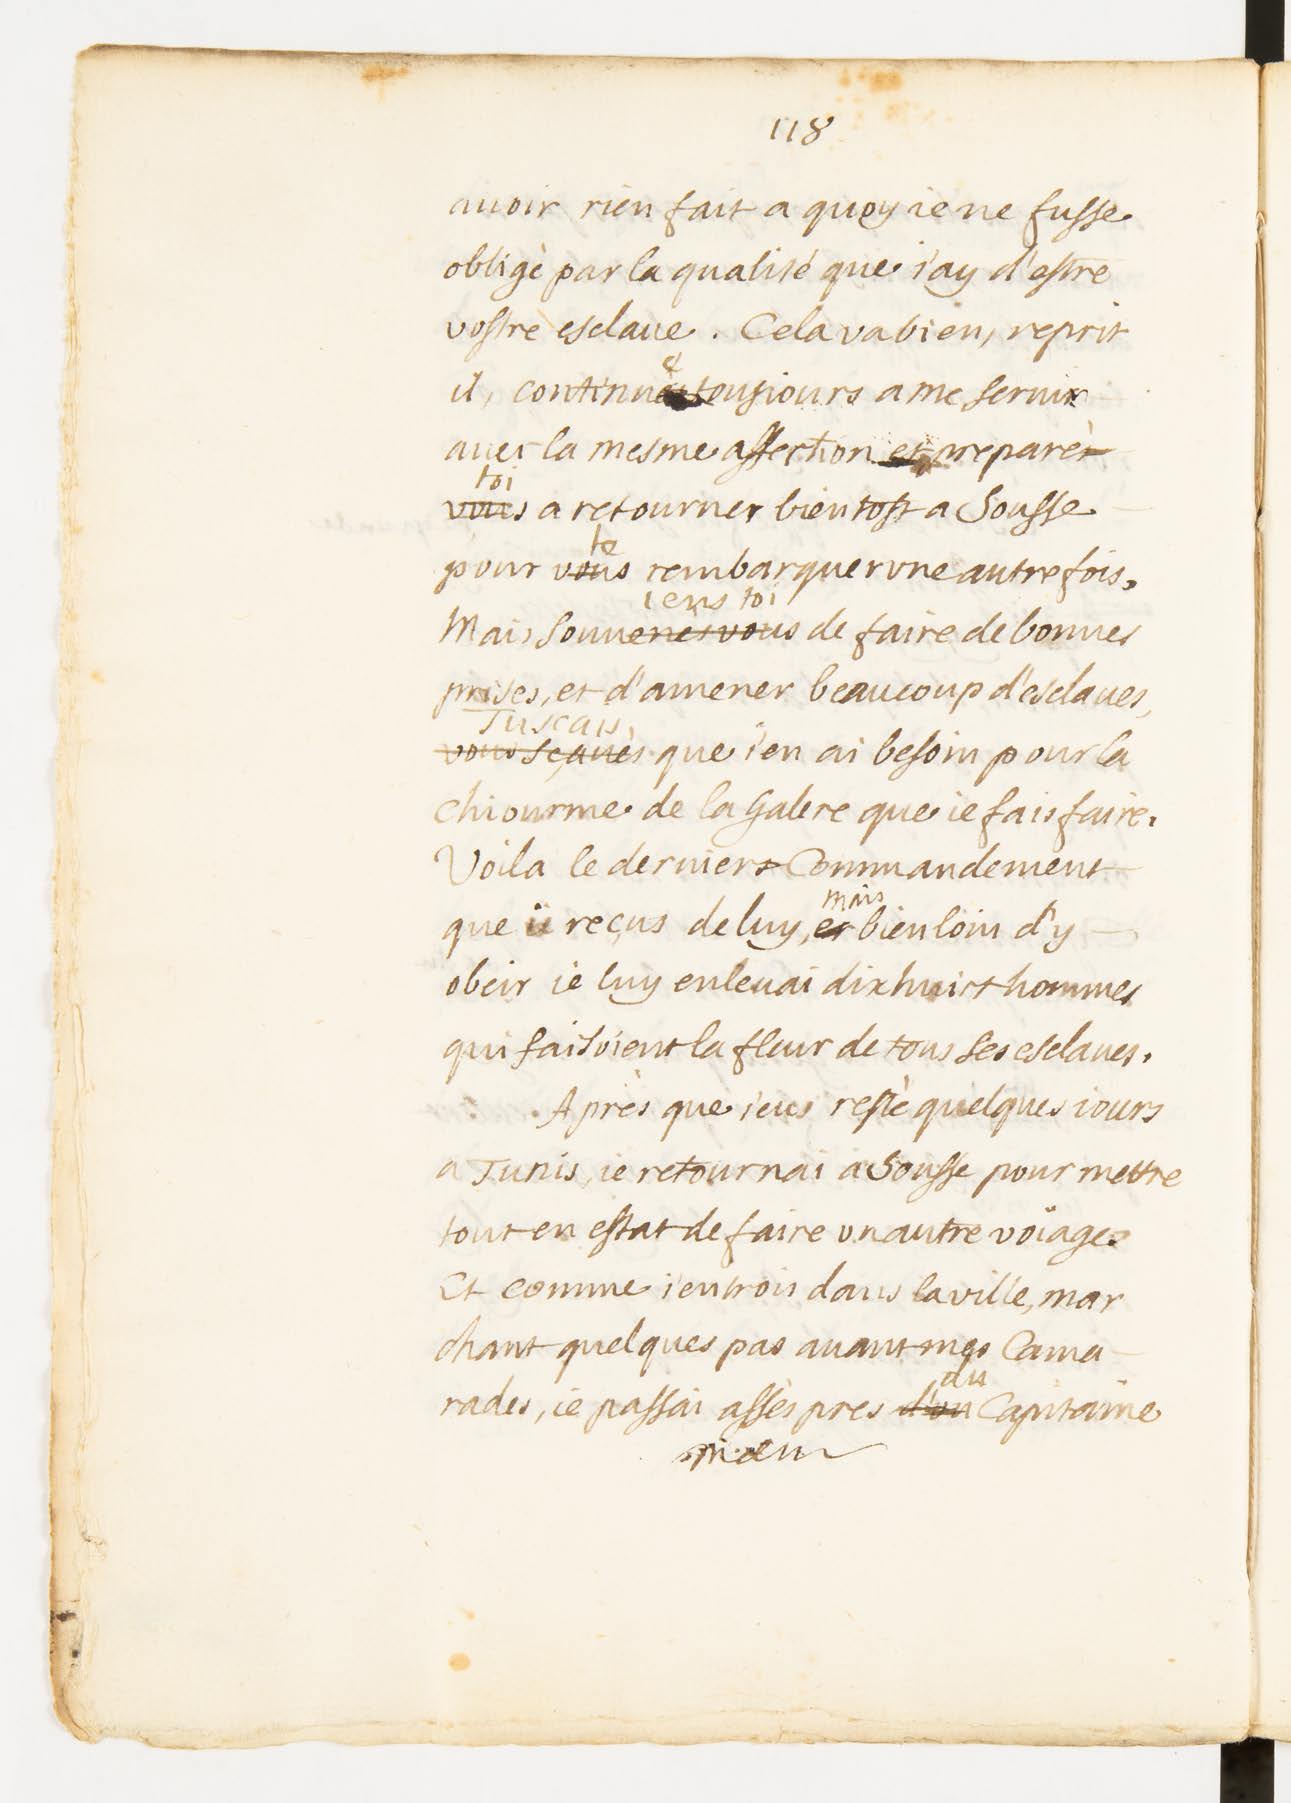 118
auoir rien fait a quoy ie ne fusse
obligè par la qualité que i'ay d'estre
vostre esclaue. Cela va bien, reprit
e
il, continuès tousiours a me seruir
auec la mesme affection et preparèr
toi
vous a retourner bientost a Sousse
te
pour vous rembarquer vne autre fois.
iens toi
Mais souuenès vous de faire de bonnes
prises, et d'amener beaucoup d'esclaues,
Tu sçais
vous sçauès que i'en ai besoin pour la
chiourme de la Galere que ie fais faire.
Voila le dernier Commandement
mais
que ie reçus de luy, et bien loin d'y
obeir ie luy enleuai dix huict hommes
qui faisoient la fleur de tous ses esclaues.
Après que i'eus restè quelques iours
a Tunis, ie retournai a Sousse pour mettre
tout en estat de faire vn autre voïage.
Et comme i'entrois dans la ville, mar
chant quelques pas auant mes Cama
du
rades, ie passai assès pres d'vn Capitaine